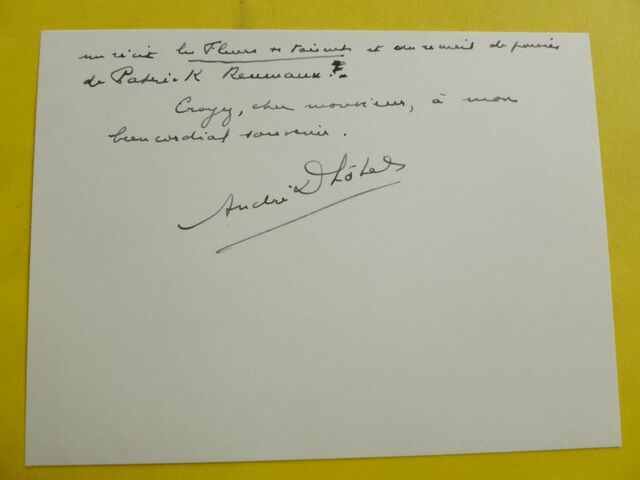 un récit les Fleurs se taisent et un recueil de poésies
de Patrick Reumaux ?
Croyez, cher monsieur, à mon
bien cordial souvenir.
André Dhôtel